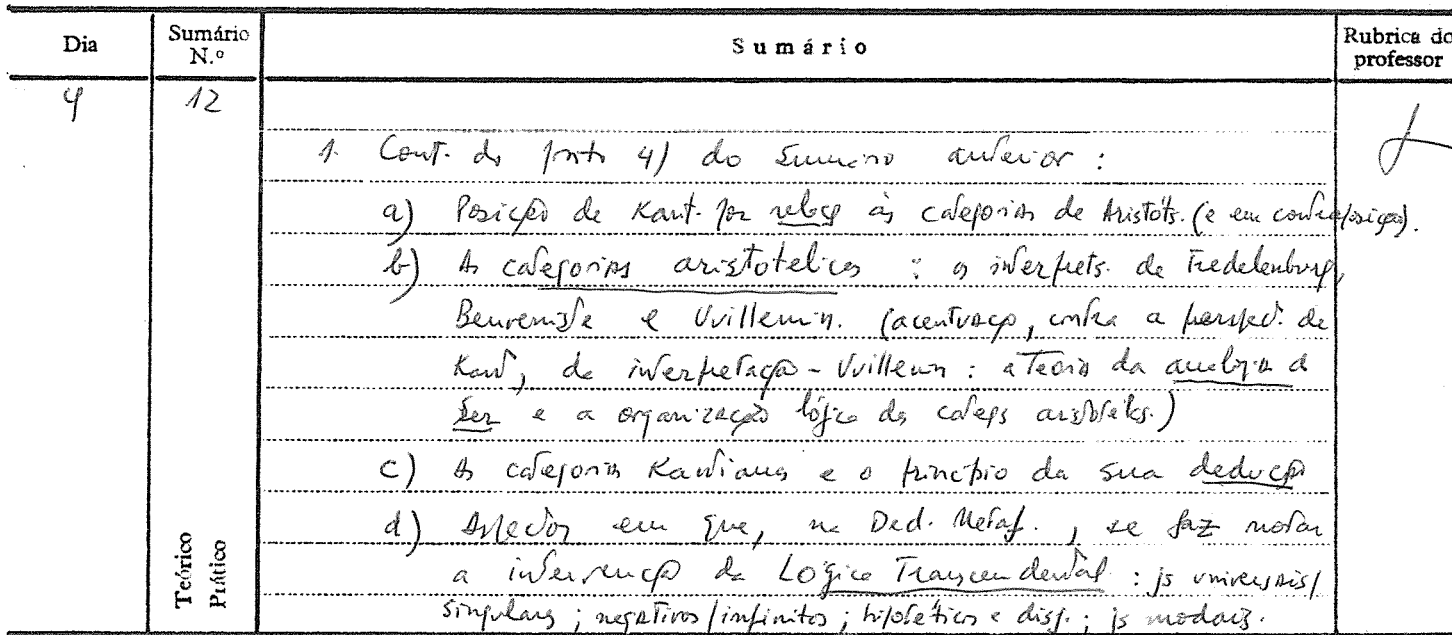 Dia Sumário N.º Sumário Rubrica do professor
4 12
1. Cont. do ponto 4) do Sumário anterior :
a) Posição de Kant por relação às categorias de Aristóts. (e em contraposição).
b) As categorias aristotélicas : as interprets. de Tredelenburg,
Benveniste e Vuillemin. (acentuação, contra a perspect. de
Kant, da interpretação - Vuillemin : a Teoria da analogia do
Ser e a organização lógica das categs aristotélcs.)
c) As categorias Kantianas e o princípio da sua dedução
d) Aspectos em que, na Ded. Metaf., se faz notar
a intervenção da Lógica Transcendental : js universais/
singulares ; negativos/infinitos ; hipotéticos e disj. ; js modais.
Teórico
Prático